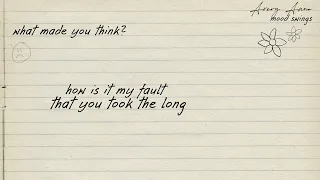 Avery Anna
mood swings
what made you think?
how is it my fault
that you took the long